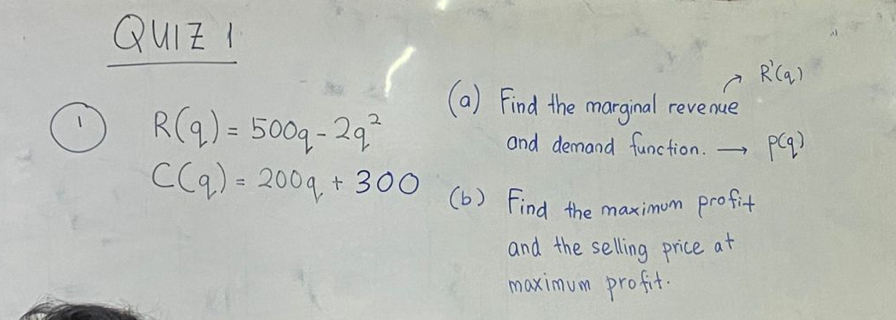 QUIZ 1
1
R(q) = 500q - 2q²
C(q) = 200q + 300
(a) Find the marginal revenue ↗ R'(q)
and demand function. → p(q)
(b) Find the maximum profit
and the selling price at
maximum profit.